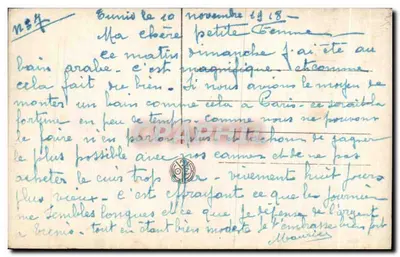 n37
Tunis le 10 novembre 1918 -
Ma chère petite femme
ce matin dimanche j'ai été au
bain arabe - c'est magnifique et comme
cela fait du bien. Si nous avions le moyen de
monter un bain comme cela à Paris - ce serait la
fortune en peu de temps - comme nous ne pouvons
le faire n'en parlons plus tachons de gagner
le plus possible avec nos et de ne pas
acheter le cuir trop cher - vivement huit jours
plus vieux - c'est effrayant ce que les journées
me semblent longues et ce que je dépense de l'argent
à tout en étant bien modeste. Je t'embrasse bien fort
Maurice